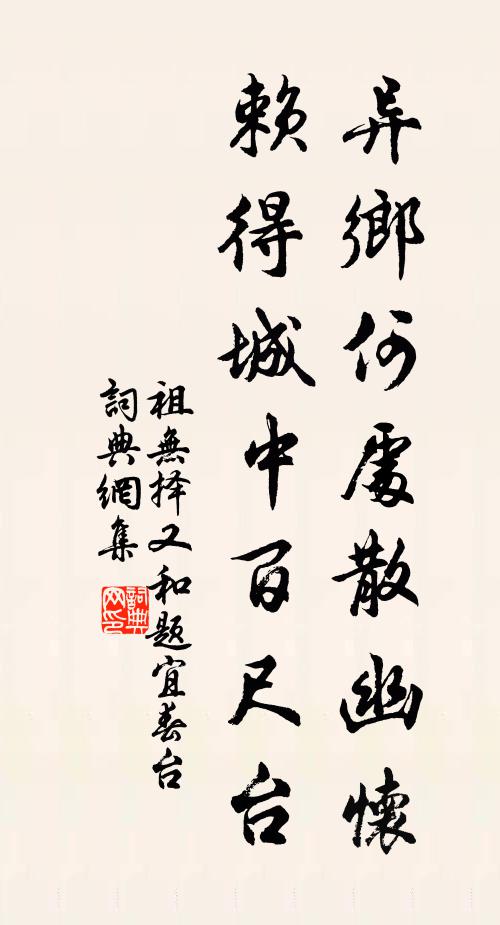 异鄉何處散幽懷
賴得城中百尺台
祖無择又和题宜春台
詞典網集
詞典网印